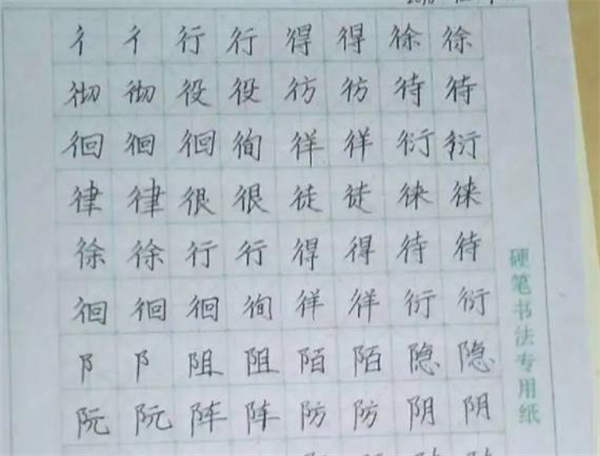 彳彳行行得得徐徐
彻彻役役彷彷待待
徊徊徊徇徉徉衍衍
律律很很徒徒徕徕
徐徐行行得得待待
徊徊徊徇徉徉衍衍
阝阝阻阻陌陌隐隐
阮阮阵阵防防阴阴
硬笔书法专用纸